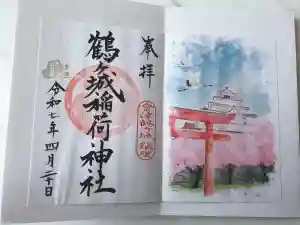 奉拝
鶴ヶ城稲荷神社
令和七年四月二十日